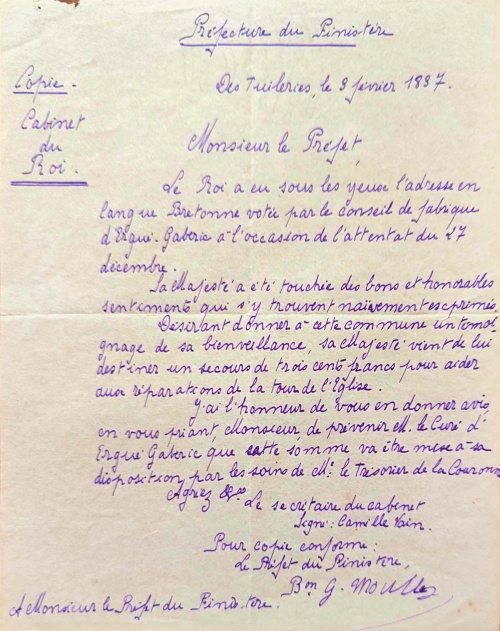 Préfecture du Finistère
Copie -
Des Tuileries, le 9 février 1837.
Cabinet
du
Roi.
Monsieur le Préfet,
Le Roi a eu sous les yeux l'adresse en
langue Bretonne votée par le conseil de fabrique
d'Ergué-Gaberic à l'occasion de l'attentat du 27
décembre.
Sa Majesté a été touchée des bons et honorables
sentiments qui s'y trouvent naïvement exprimés.
Désirant donner à cette commune un témoi-
gnage de sa bienveillance, sa Majesté vient de lui
destiner un secours de trois cents francs pour aider
aux réparations de la tour de l'Eglise.
J'ai l'honneur de vous en donner avis
en vous priant, Monsieur, de prévenir M. le Curé d'
Ergué Gaberic que cette somme va être mise à sa
disposition par les soins de Mr. le Trésorier de la Couronne
Agréez &
Le secrétaire du cabinet
Signé: Camille Fain.
Pour copie conforme:
Le Préfet du Finistère,
Bon G. Moulle
A Monsieur le Préfet du Finistère.